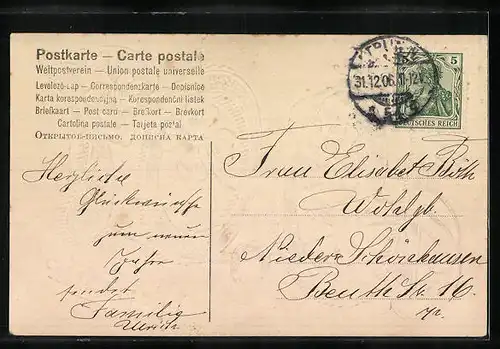 Postkarte — Carte postale
Weltpostverein — Union postale universelle
Levelező-Lap — Correspondenzkarte — Dopisnice
Karta korespondencyjna — Korespondenční lístek
Briefkaart — Post card — Brefkort — Brevkort
Cartolina postale — Tarjeta postal
Открытое письмо. дописна карта
31.12.06
5
DEUTSCHES REICH
Herzliche
Glückwünsche
zum neuen
Jahre
sendet
Familie
Ulrich
Frau Elisabet Böth
Wohlgb.
Nieder Schönhausen
Beuth Str 16.